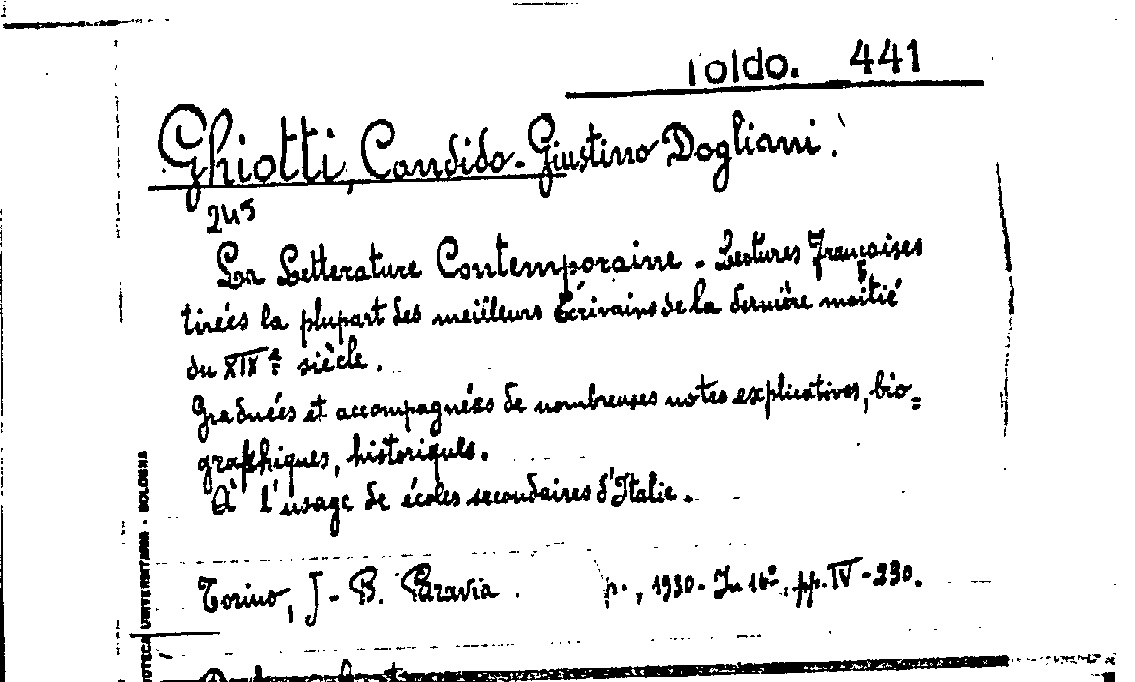 Toldo. 441
Ghiotti, Candido - Giustino Dogliani.
245
La Letterature Contemporaine - Lectures Françaises
tirées la plupart des meilleurs Écrivains de la dernière moitié
du XIXe siècle.
Graduées et accompagnées de nombreuses notes explicatives, bio=
graphiques, historiques.
À l'usage de écoles secondaires d'Italie.
Torino, J - B. Paravia. p., 1930 - In 16º, pp. IV - 230.
BIBLIOTECA UNIVERSITARIA - BOLOGNA